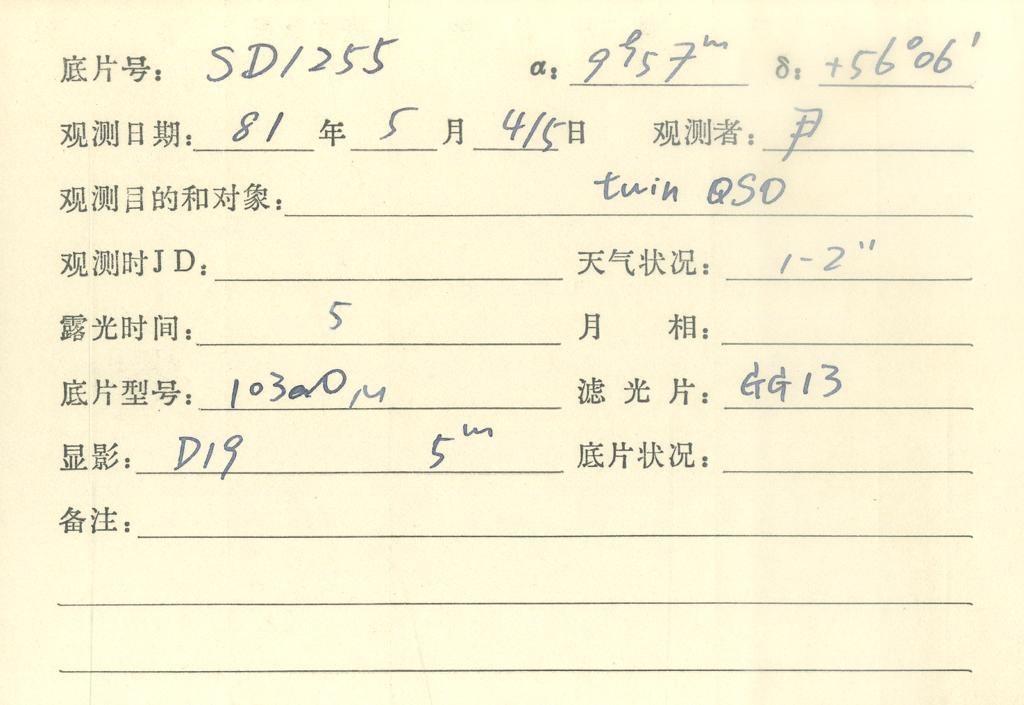 底片号： SD1255 α： 9h57m δ： +56°06'
观测日期： 81 年 5 月 4/5 日 观测者： 尹
观测目的和对象： twin QSO
观测时JD： 天气状况： 1-2"
露光时间： 5 月 相：
底片型号： 103aO 滤光片： GG13
显影： D19 5m 底片状况：
备注：